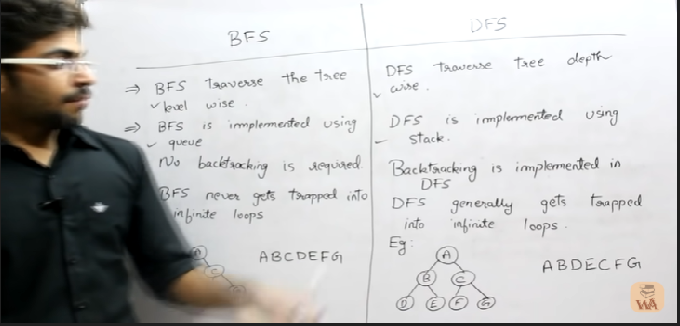 BFS
⇒ BFS traverse the tree
level wise.
⇒ BFS is implemented using
queue
No backtracking is required
BFS never gets trapped into
infinite loops
A
C
ABCDEFG
DFS
DFS traverse tree depth
wise.
DFS is implemented using
stack.
Backtracking is implemented in
DFS
DFS generally gets trapped
into infinite loops.
Eg:
A
B C
D E F G
ABDECFG
WA